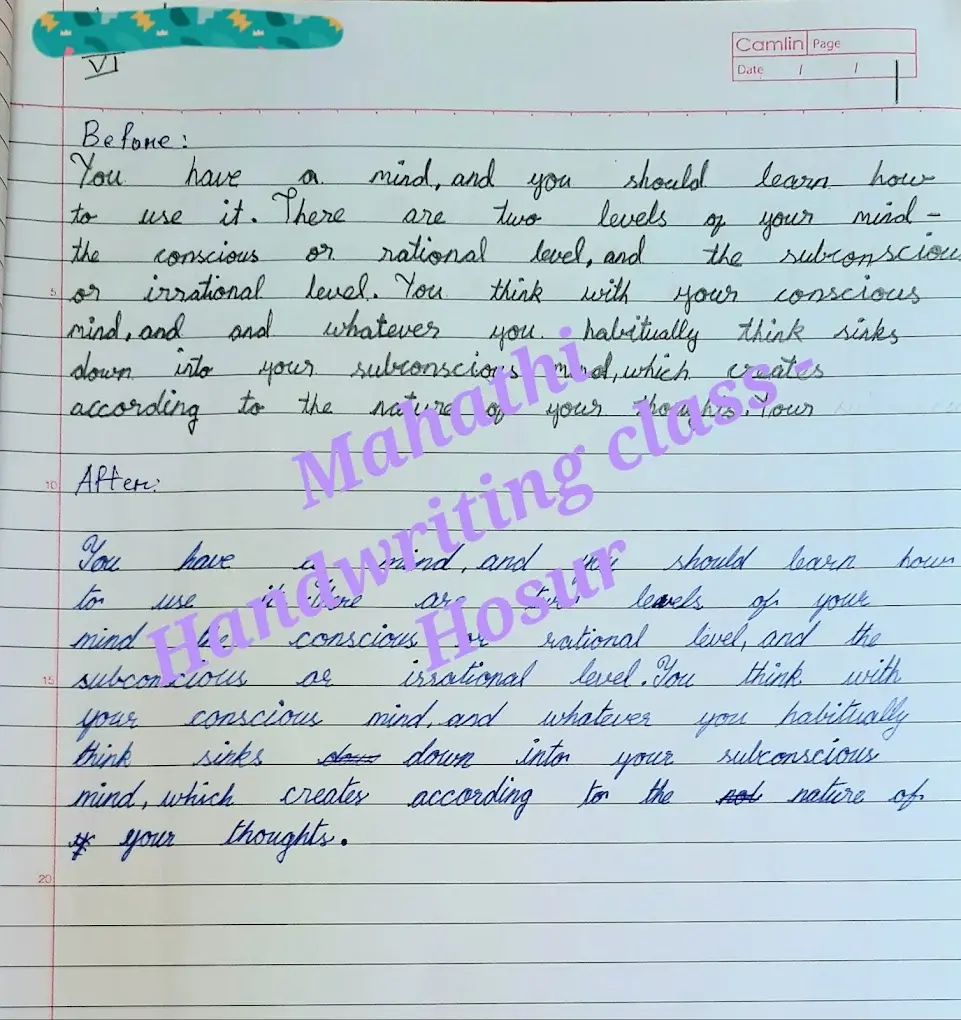 VI
Camlin Page
Date / /
Before:
You have a mind, and you should learn how
to use it. There are two levels of your mind -
the conscious or rational level, and the subconsciou
5 or irrational level. You think with your conscious
mind, and and whatever you habitually think sinks
down into your subconscious mind, which creates
according to the nature of your thoughts. Your
10 After:
You have a mind, and you should learn how
to use it. There are two levels of your
mind the conscious or rational level, and the
15 subconscious or irrational level. You think with
your conscious mind, and whatever you habitually
think sinks down into your subconscious
mind, which creates according to the nature of
your thoughts.
20
Mahathi
Handwriting class -
Hosur